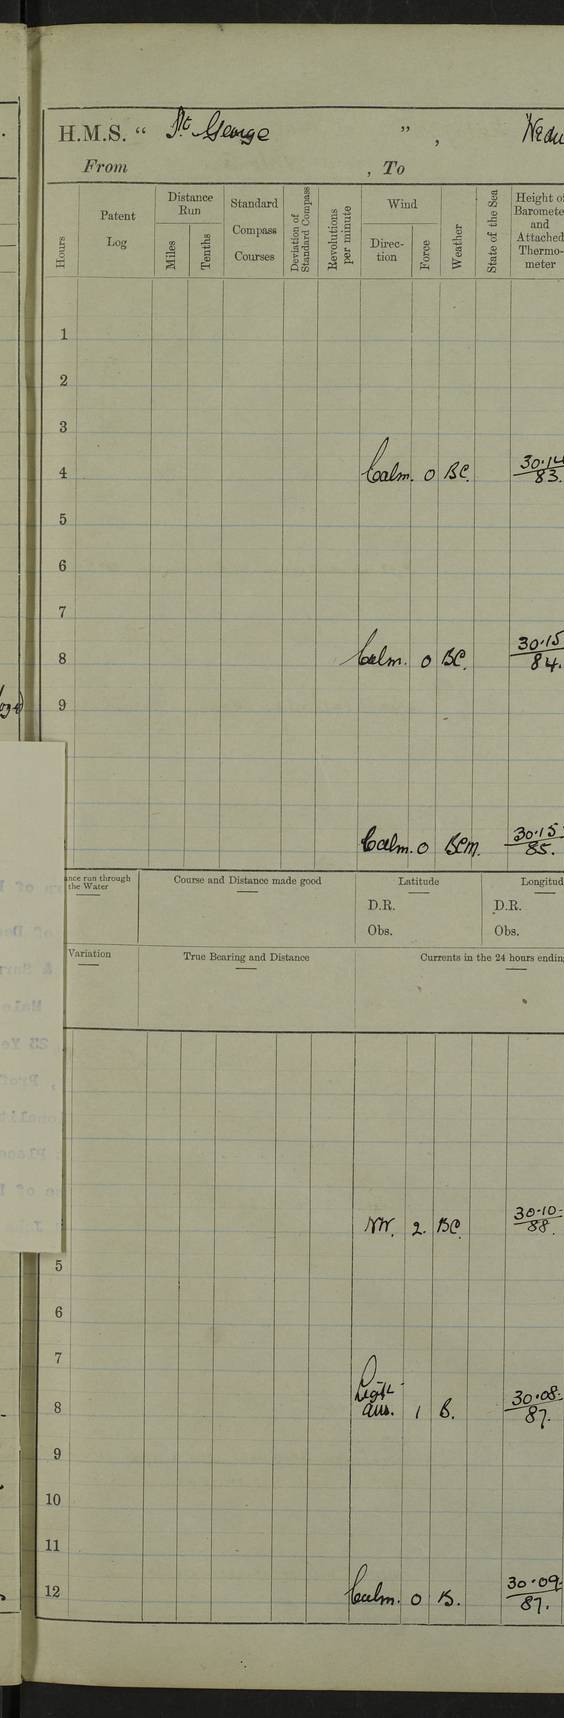 H.M.S. “ St. George ” , Wedn
From , To
Hours
Patent Log
Distance Run
Miles
Tenths
Standard Compass Courses
Deviation of Standard Compass
Revolutions per minute
Wind
Direc- tion
Force
Weather
State of the Sea
Height of Baromete and Attached Thermo- meter
1
2
3
4 Calm. 0 BC. 30.14 83.
5
6
7
8 Calm. 0 BC. 30.15 84.
9
Calm. 0 BCM. 30.15 85.
nce run through the Water
Course and Distance made good
Latitude
Longitud
D.R. D.R.
Obs. Obs.
Variation
True Bearing and Distance
Currents in the 24 hours ending
NW. 2. BC. 30.10 88.
5
6
7
Light
8 airs. 1 B. 30.08 87.
9
10
11
12 Calm. 0 B. 30.09 87.